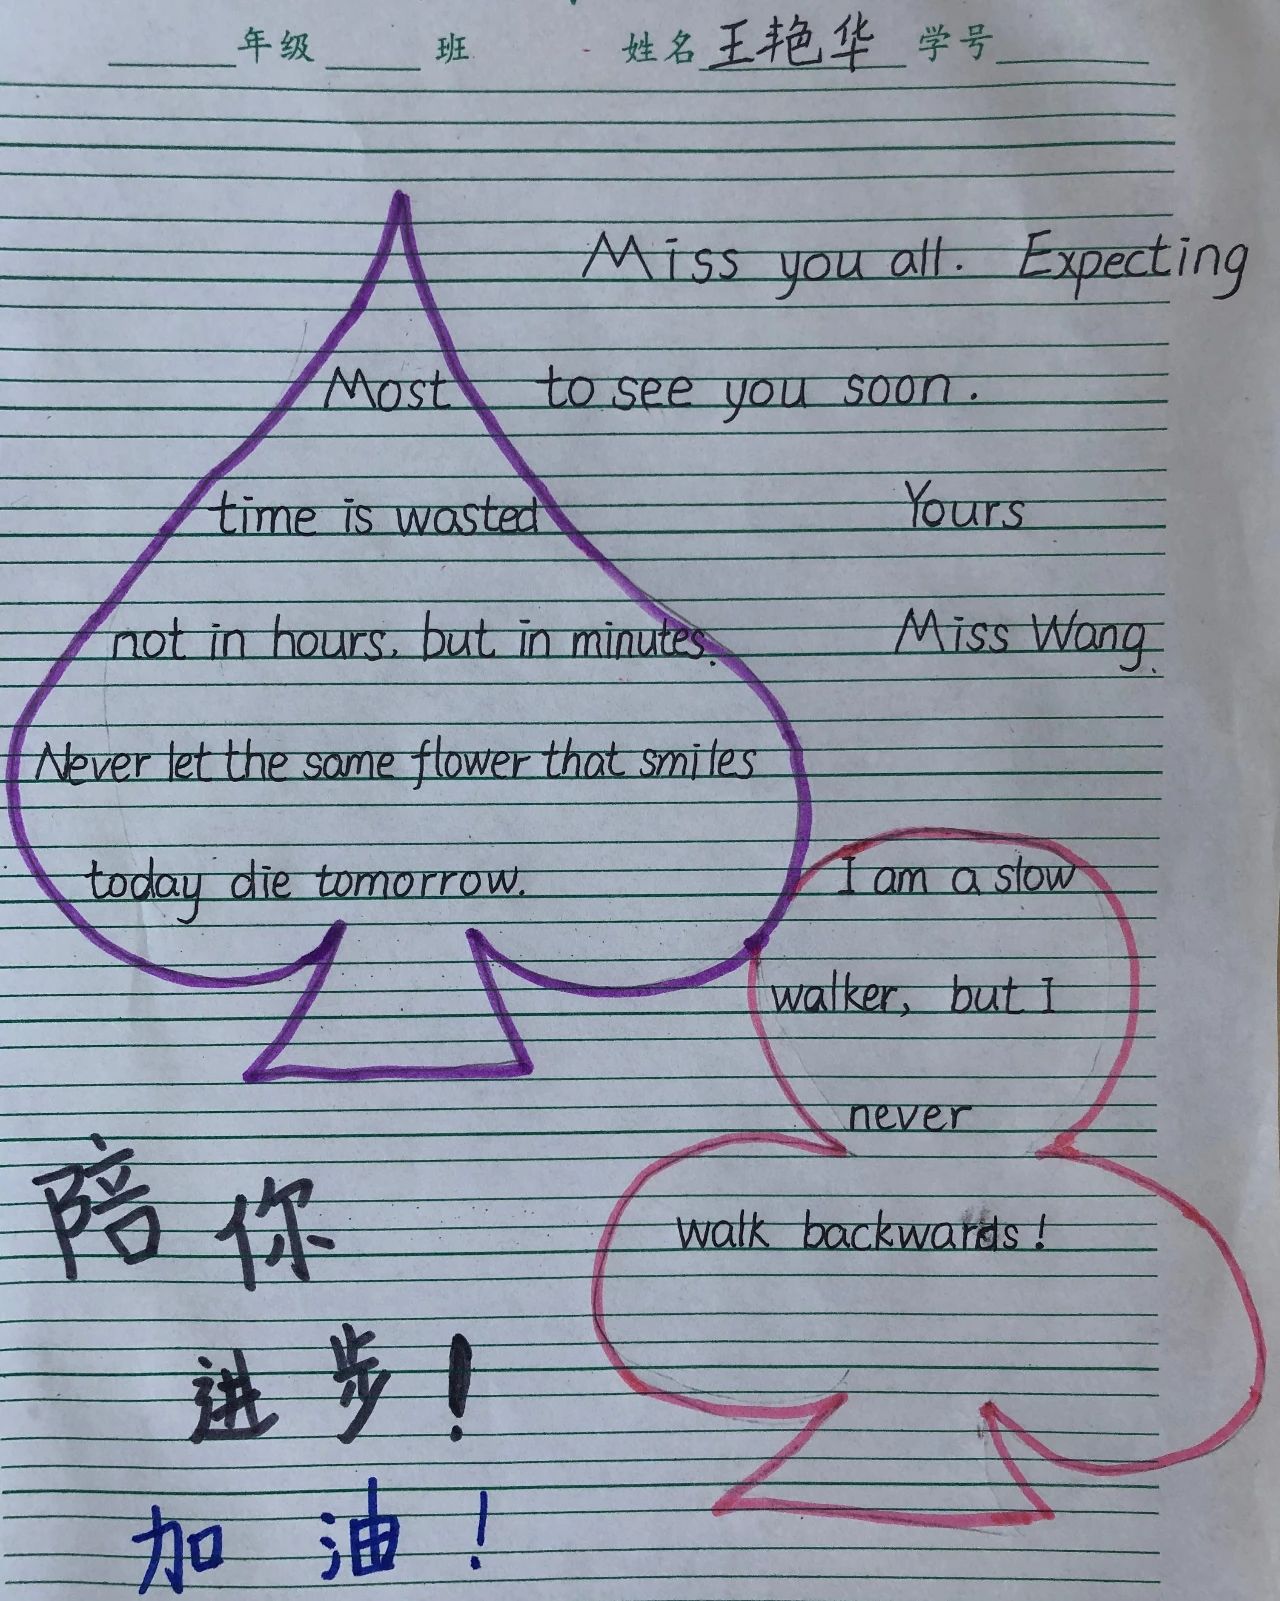 年级 班 姓名 王艳华 学号
Miss you all. Expecting
to see you soon.
Yours
Miss Wang.
Most
time is wasted
not in hours, but in minutes.
Never let the same flower that smiles
today die tomorrow.
I am a slow
walker, but I
never
walk backwards!
陪你
进步!
加油!